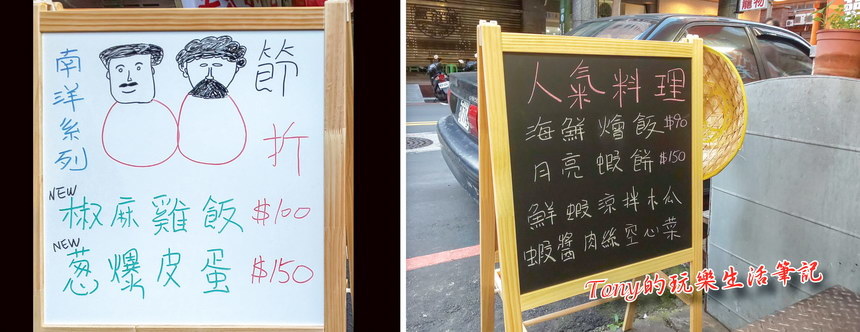 南洋系列
節
折
NEW
椒麻雞飯 $100
NEW
蔥爆皮蛋 $150
人氣料理
海鮮燴飯 $90
月亮蝦餅 $150
鮮蝦涼拌木瓜
蝦醬肉絲空心菜
Tony的玩樂生活筆記